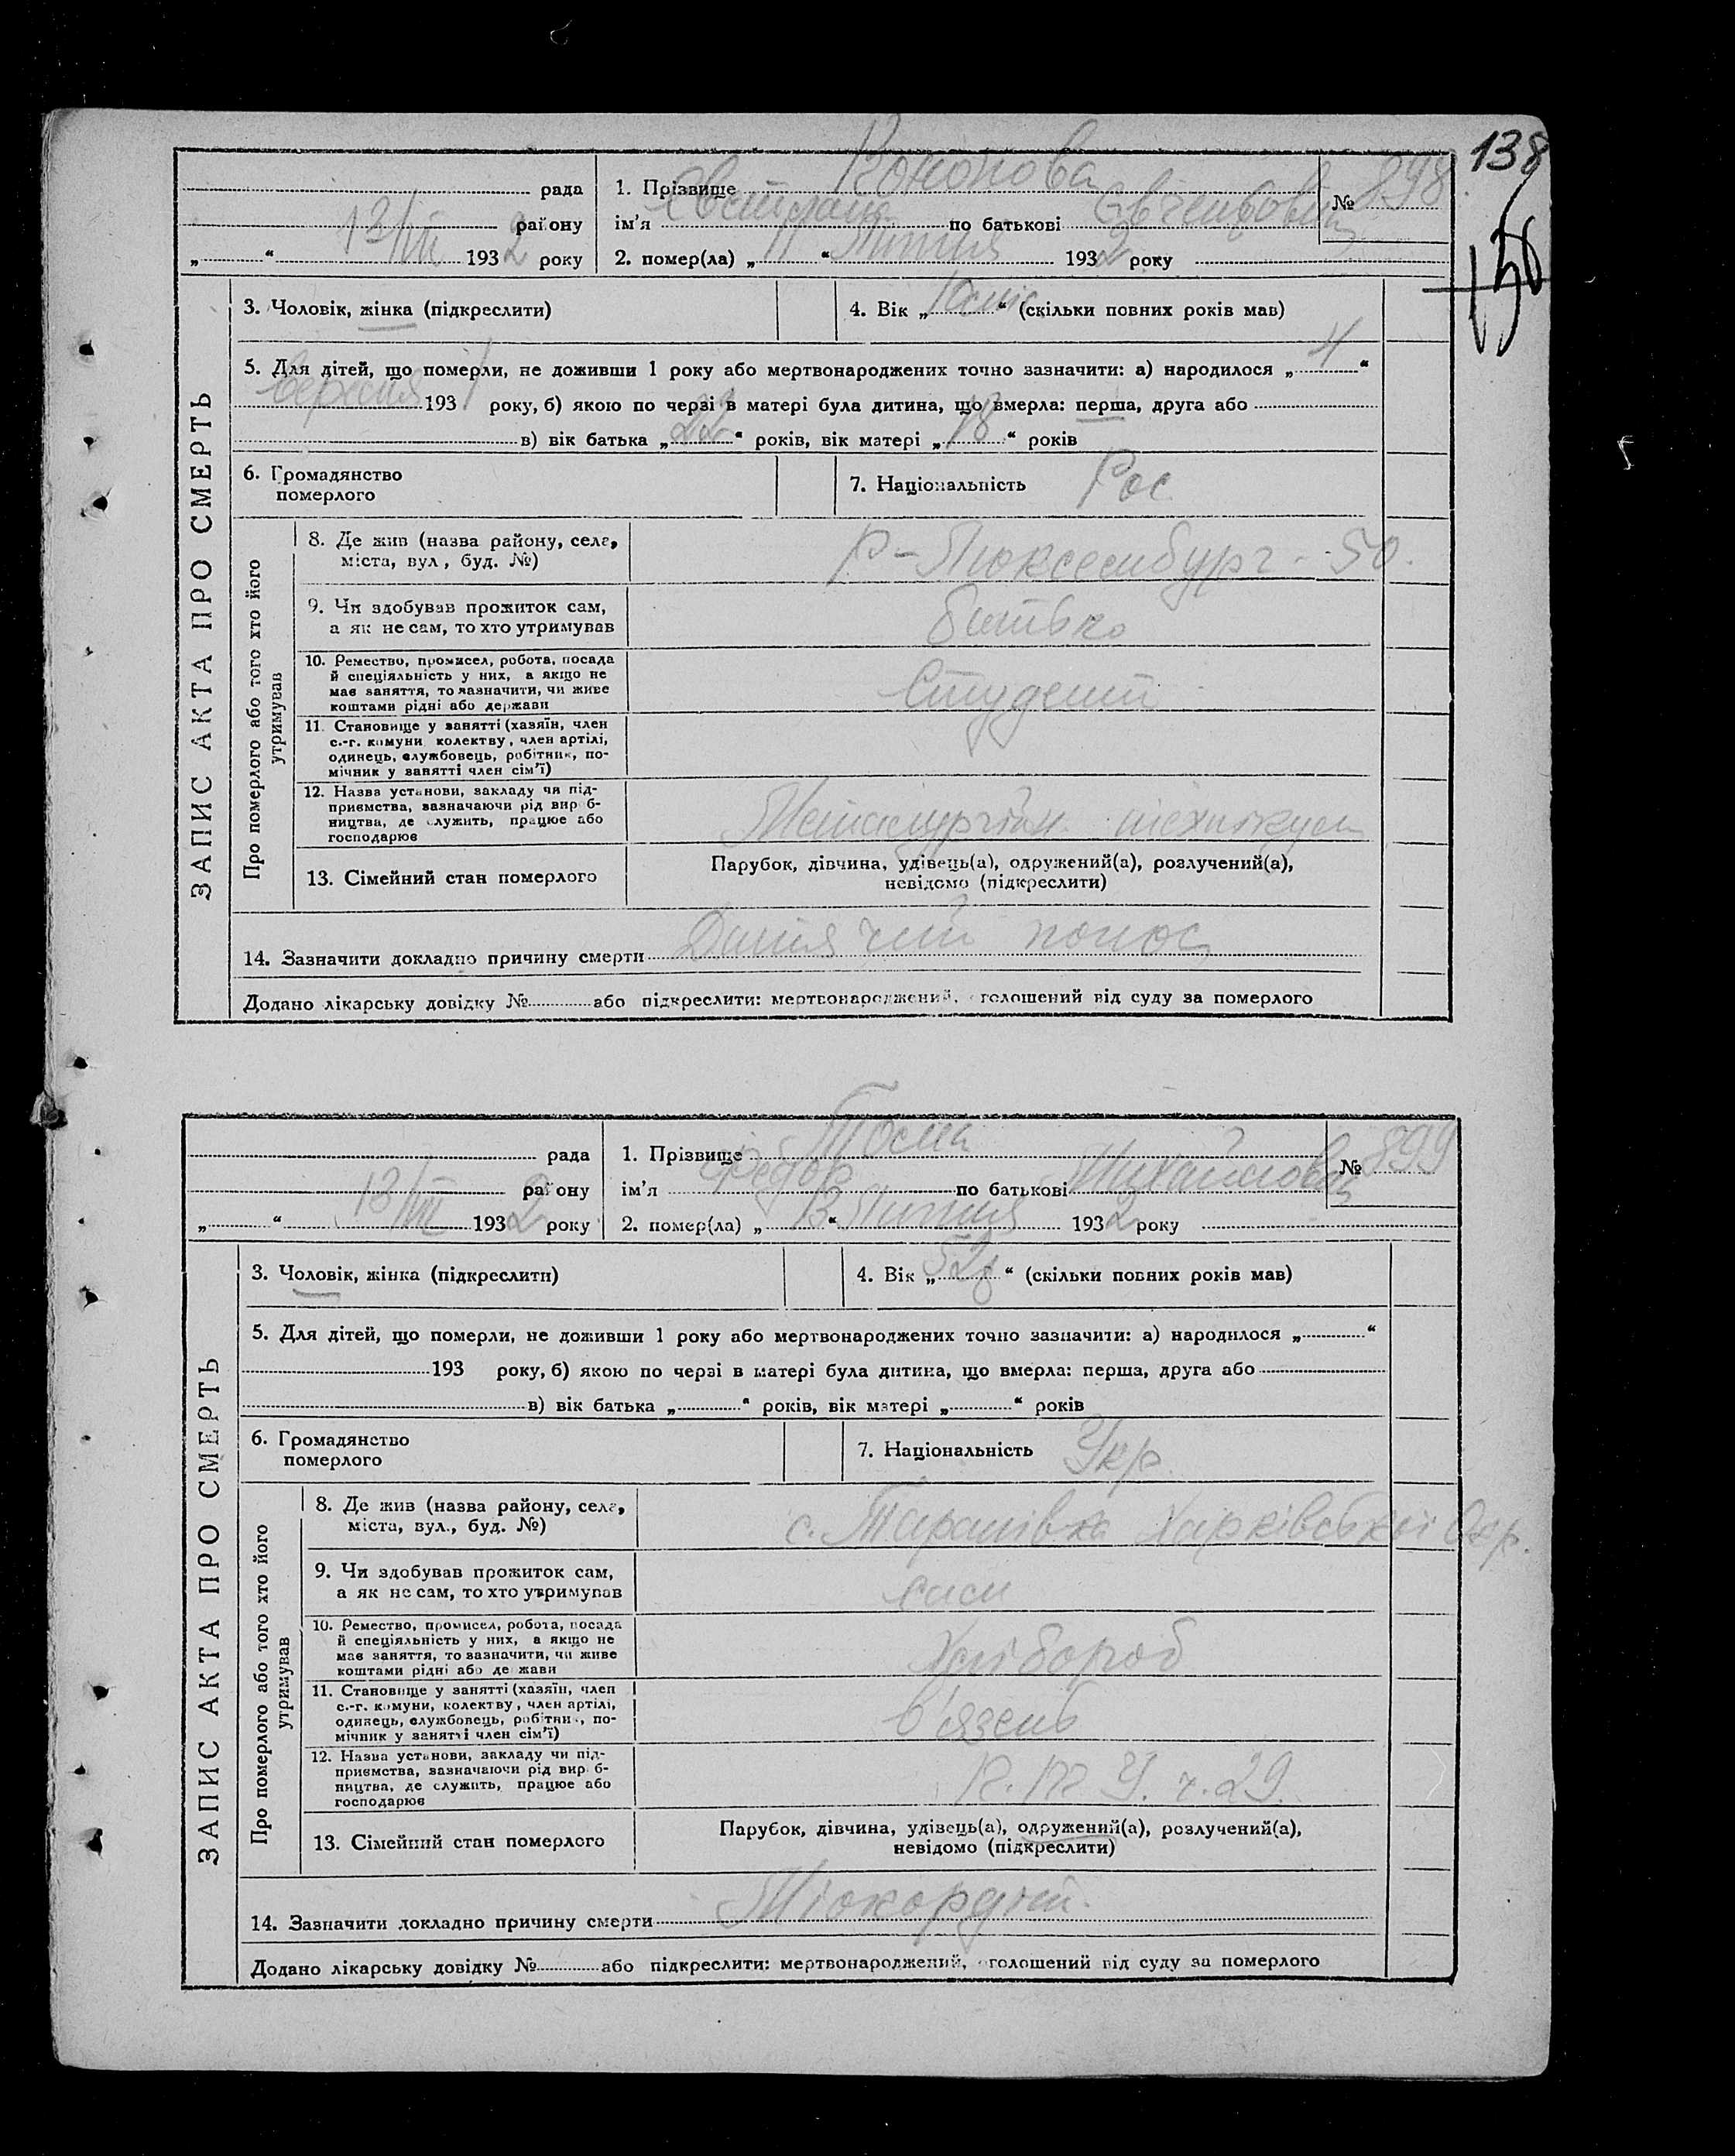 138
156
рада 1. Прізвище Кононова № 898
району ім'я по батькові
„ “ 13/VII 1932 року 2. помер(ла) „11“ Липня 1932 року
ЗАПИС АКТА ПРО СМЕРТЬ
3. Чоловік, жінка (підкреслити) 4. Вік „10 міс“ (скільки повних років мав)
5. Для дітей, що померли, не доживши 1 року або мертвонароджених точно зазначити: а) народилося „ “
вересня 1931 року, б) якою по черзі в матері була дитина, що вмерла: перша, друга або
в) вік батька „22“ років, вік матері „18“ років
6. Громадянство
померлого
7. Національність Рос
Про померлого або того хто його
утримував
8. Де жив (назва району, села,
міста, вул, буд. №)
Р-Люксембург - 50.
9. Чи здобував прожиток сам,
а як не сам, то хто утримував
батько
10. Ремество, промисел, робота, посада
й спеціяльність у них, а якщо не
має заняття, то зазначити, чи живе
коштами рідні або держави
Студент
11. Становище у занятті (хазяїн, член
с.-г. комуни колектву, член артілі,
одинець, службовець, робітник, по-
мічник у занятті член сім'ї)
12. Назва установи, закладу чи під-
приємства, зазначаючи рід вироб-
ництва, де служить, працює або
господарює
Металургійн технікум
13. Сімейний стан померлого
Парубок, дівчина, удівець(а), одружений(а), розлучений(а),
невідомо (підкреслити)
14. Зазначити докладно причину смерти Дитячий понос
Додано лікарську довідку № або підкреслити: мертвонароджений, оголошений від суду за померлого
рада 1. Прізвище № 899
району ім'я Федор по батькові Михайлович
„ “ 13/VII 1932 року 2. помер(ла) „13“ Липня 1932 року
ЗАПИС АКТА ПРО СМЕРТЬ
3. Чоловік, жінка (підкреслити) 4. Вік „52р“ (скільки повних років мав)
5. Для дітей, що померли, не доживши 1 року або мертвонароджених точно зазначити: а) народилося „ “
193 року, б) якою по черзі в матері була дитина, що вмерла: перша, друга або
в) вік батька „ “ років, вік матері „ “ років
6. Громадянство
померлого
7. Національність Укр
Про померлого або того хто його
утримував
8. Де жив (назва району, села,
міста, вул., буд. №)
с. Таранівка Харківської Окр.
9. Чи здобував прожиток сам,
а як не сам, то хто утримував
сам
10. Ремество, промисел, робота, посада
й спеціяльність у них, а якщо не
має заняття, то зазначити, чи живе
коштами рідні або держави
Хлібороб
11. Становище у занятті (хазяїн, член
с.-г. комуни, колектву, член артілі,
одинець, службовець, робітник, по-
мічник у занятті член сім'ї)
в'язень
12. Назва установи, закладу чи під-
приємства, зазначаючи рід вироб-
ництва, де служить, працює або
господарює
ч. 29.
13. Сімейний стан померлого
Парубок, дівчина, удівець(а), одружений(а), розлучений(а),
невідомо (підкреслити)
14. Зазначити докладно причину смерти Міокордит.
Додано лікарську довідку № або підкреслити: мертвонароджений, оголошений від суду за померлого